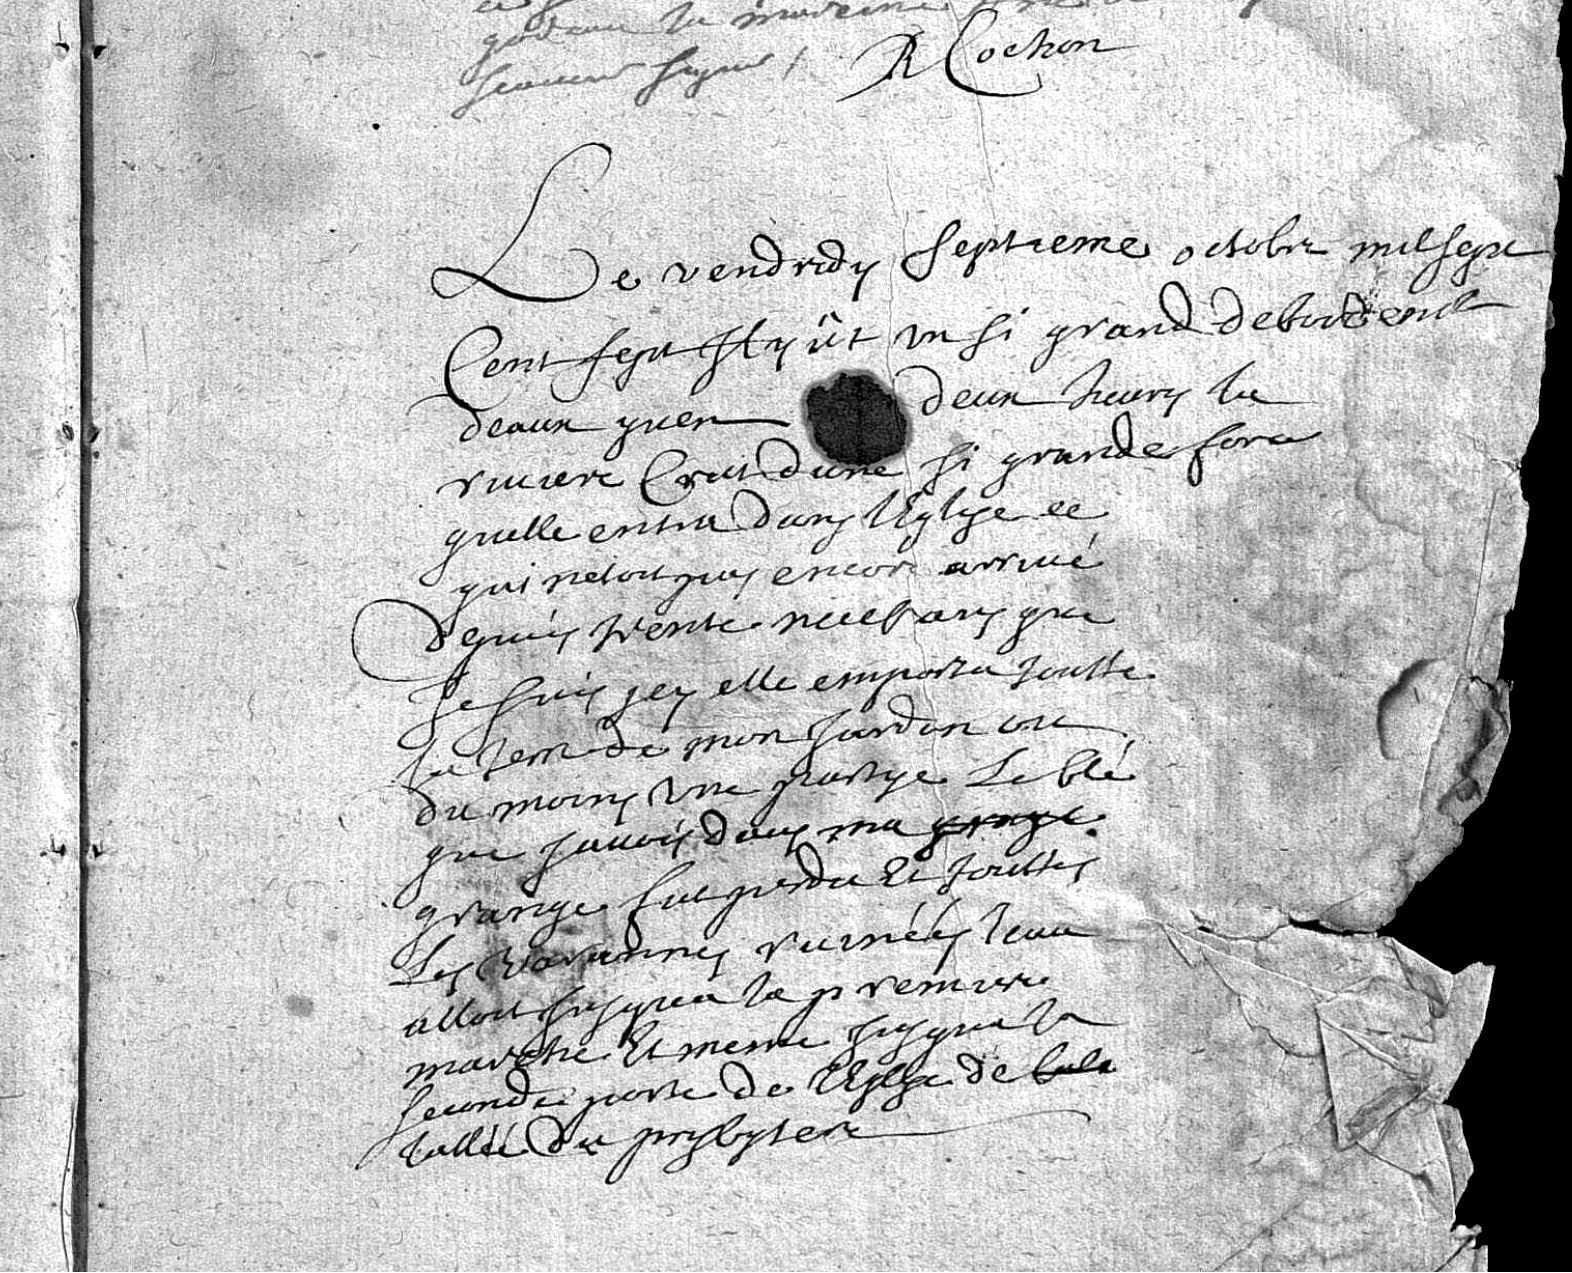 la
scavent signer / R Cochon
Le vendredy septieme octobre mil sept
Cent sept Il y ût un si grand debordement
deaux quen deux heures la
riviere Crut dune si grande force
quelle entra dans lEglise ce
qui netoit pas encore arrivé
depuis trente neuf ans que
Je suis icy elle emporta toutte
la terre de mon Jardin ou
du moins une partye Le blé
que Javois dans ma grange
grange fut perdu Et touttes
Les varannes ruinéés leau
alloit jusqua la premiere
marche Et meme jusqua la
seconde porte de lEglise de
lallée du presbytere